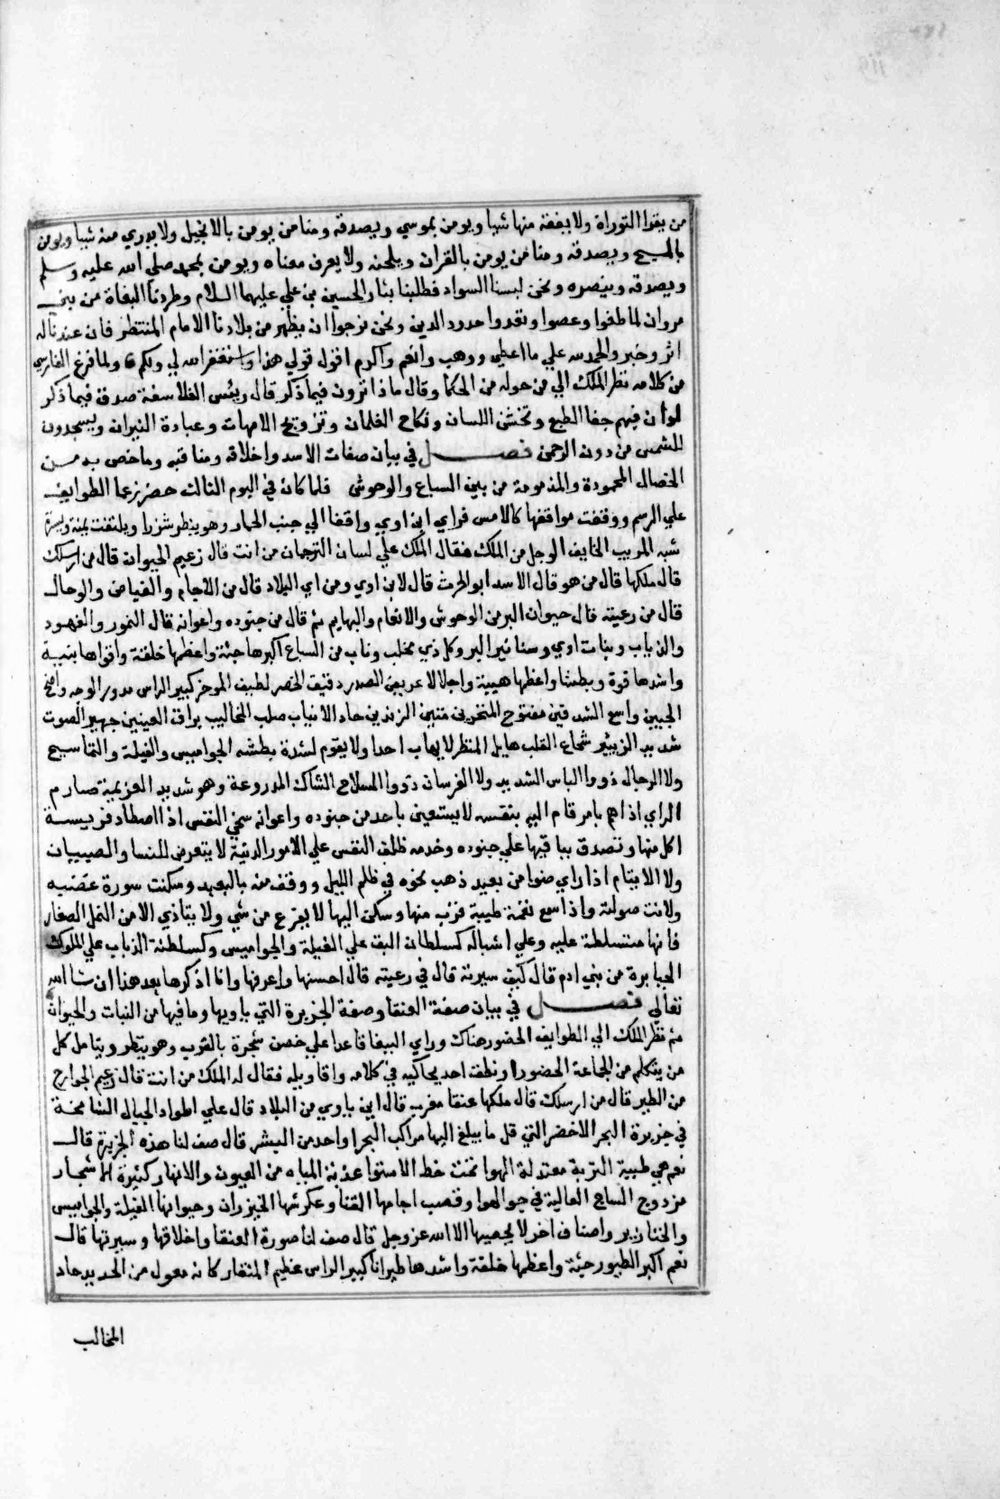 من يقرا التوراة ولا يفقه منها شيا ويومن بموسي ويصدقه ومنا من يومن بالانجيل ولا يدري منه شيا ويومن
بالمسيح ويصدقه ومنا من يومن بالقران ويلحنه ولا يعرف معناه ويومن بمحمد صلي الله عليه وسلم
ويصدقه وينصره ونحن لبسنا السواد فطلبنا بثار الحسين بن علي عليهما السلام وطردنا البغاة من بني
مروان لما طغوا وعصوا وتعدوا حدود الدين ونحن نرجوا ان يظهر من بلادنا الامام المنتظر فان عندنا له
اثر وخبر والحمد لله علي ما اعطي ووهب وانعم واكرم اقول قولي هذا واستغفر الله لي ولكم ولما فرغ الفارسي
من كلامه نظر الملك الي من حوله من الحكما وقال ماذا ترون فيما ذكر قال رييس الفلاسفة صدق فيما ذكر
لولا ان فيهم جفا الطبع وفحش اللسان ونكاح الغلمان وتزويج الامهات وعبادة النيران ويسجدون
للشمس من دون الرحمن فصل في بيان صفات الاسد واخلاقه ومناقبه وما خص به من
الخصال المحمودة والمذمومة من بين السباع والوحوش فلما كان في اليوم الثالث حضر زعما الطوايف
علي الرسم ووقفت مواقفها كالامس فراي ابن اوي واقفا الي جنب الحمار وهو ينظر شزرا ويلتفت يمنة ويسرة
شبه المريب الخايف الوجل من الملك فقال الملك علي لسان الترجمان من انت قال زعيم الحيوان قال من ارسلك
قال ملكها قال من هو قال الاسد ابو الحرث قال لابن اوي ومن اي البلاد قال من الاجام والفيافي والوحال
قال من رعيته قال حيوان البر من الوحوش والانعام والبهايم ثم قال من جنوده واعوانه قال النمور والفهود
والذياب وبنات اوي وسنانير البر وكل ذي مخلب وناب من السباع اكبرها جثة واعظمها خلقة واقواها بنية
واشدها قوة وبطشا واعظمها هيبة واجلالا عريض الصدر دقيق الخصر لطيف الموخر كبير الراس مدور الوجه واضح
الجبين واسع الشدقين مفتوح المنخرين متين الزندين حاد الانياب صلب المخاليب براق العينين جهير الصوت
شديد الزيير شجاع القلب هايل المنظر لا يهاب احدا ولا يقوم لشدة بطشه الجواميس والفيلة والتماسيح
ولا الرجال ذووا الباس الشديد ولا الفرسان ذووا السلاح الشاك المدروعة وهو شديد العزيمة صارم
الراي اذا هم بامر قام اليه بنفسه لا يستعين باحد من جنوده واعوانه سخي النفس اذا اصطاد فريسة
اكل منها وتصدق بباقيها علي جنوده وخدمه ظلف النفس علي الامور الدنية لا يتعرض للنسا والصبيان
ولا الايتام اذا راي ضوا من بعيد ذهب نحوه في ظلم الليل ووقف منه بالبعيد وسكنت سورة غضبه
ولانت صولته واذا سمع نغمة طيبة قرب منها وسكن اليها لا يفزع من شي ولا يتاذي الا من النمل الصغار
فانها متسلطة عليه وعلي اشباله كسلطان البق علي الفيلة والجواميس وكسلطنة الذباب علي الملوك
الجبابرة من بني ادم قال كيف سيرته قال في رعيته قال احسنها واعرفها وانا اذكرها بعد هذا ان شا الله
تعالي فصل في بيان صفة العنقا وصفة الجزيرة التي ياويها وما فيها من النبات والحيوان
ثم نظر الملك الي الطوايف الحضور هناك وراي الببغا قاعدا علي غصن شجرة بالقرب وهو ينظر ويتامل كل
من يتكلم من الجماعة الحضور او نطق احد يحاكيه في كلامه واقاويله فقال له الملك من انت قال زعيم الجوارح
من الطير قال من ارسلك قال ملكها عنقا مغرب قال اين ياوي من البلاد قال علي اطواد الجبال الشامخة
في جزيرة البحر الاخضر التي قل ما يبلغ اليها مراكب البحر او احد من البشر قال صف لنا هذه الجزيرة قال
نعم هي طيبة التربة معتدلة الهوا تحت خط الاستوا عذبة المياه من العيون والانهار كثيرة الاشجار
من دوح الساج العالية في جو الهوا وقصب اجامها القنا وعكرشها الخيزران وحيوانها الفيلة والجواميس
والخنازير واصناف اخر لا يحصيها الا الله عز وجل قال صف لنا صورة العنقا واخلاقها وسيرتها قال
نعم اكبر الطيور جثة واعظمها خلقة واشدها طيرانا كبير الراس عظيم المنقار كانه معول من الحديد حاد
المخالب